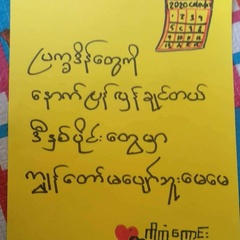 2020 CALENDAR
ပြက္ခဒိန်တွေကို
နောက်ပြန်လှန်ချင်တယ်
ဒီနှစ်ပိုင်းတွေမှာ
ကျွန်တော်မပျော်ဘူးမေမေ